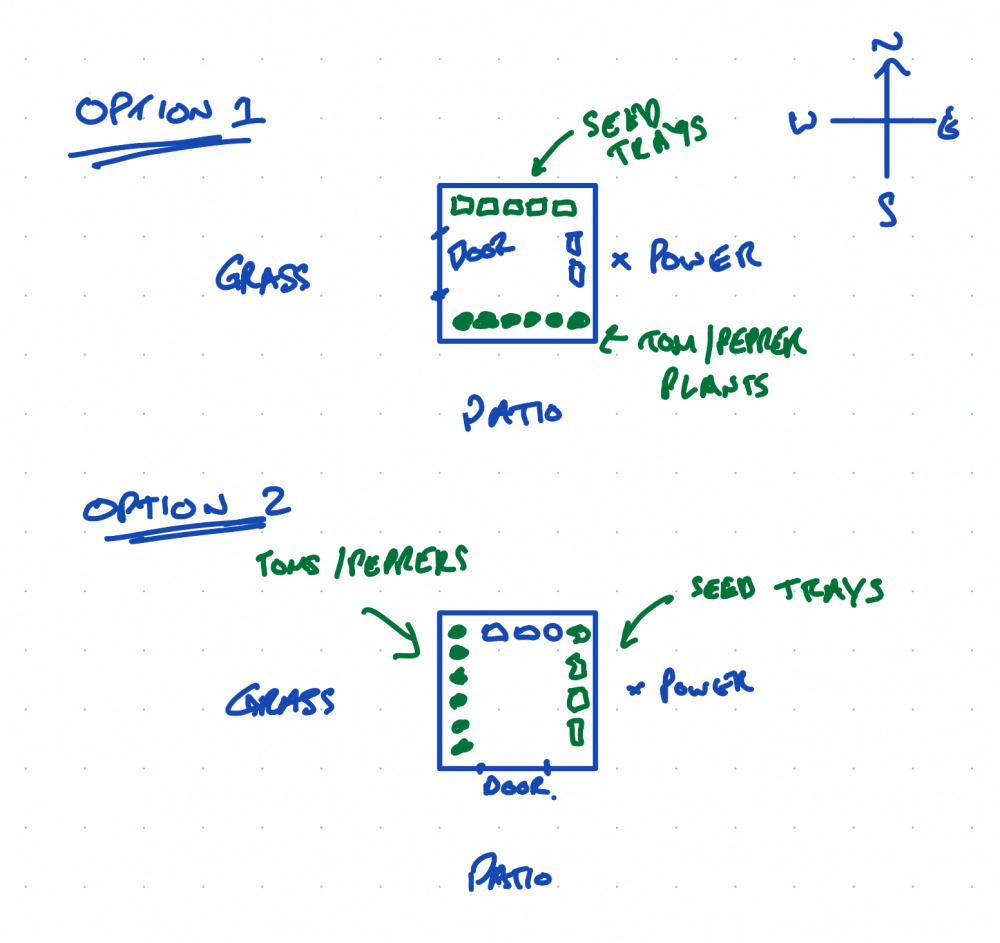 N
OPTION 1
SEED
TRAYS
W
E
S
DOOR
GRASS
x POWER
TOM/PEPPER
PLANTS
PATIO
OPTION 2
TOMS/PEPPERS
SEED TRAYS
GRASS
x POWER
DOOR.
PATIO